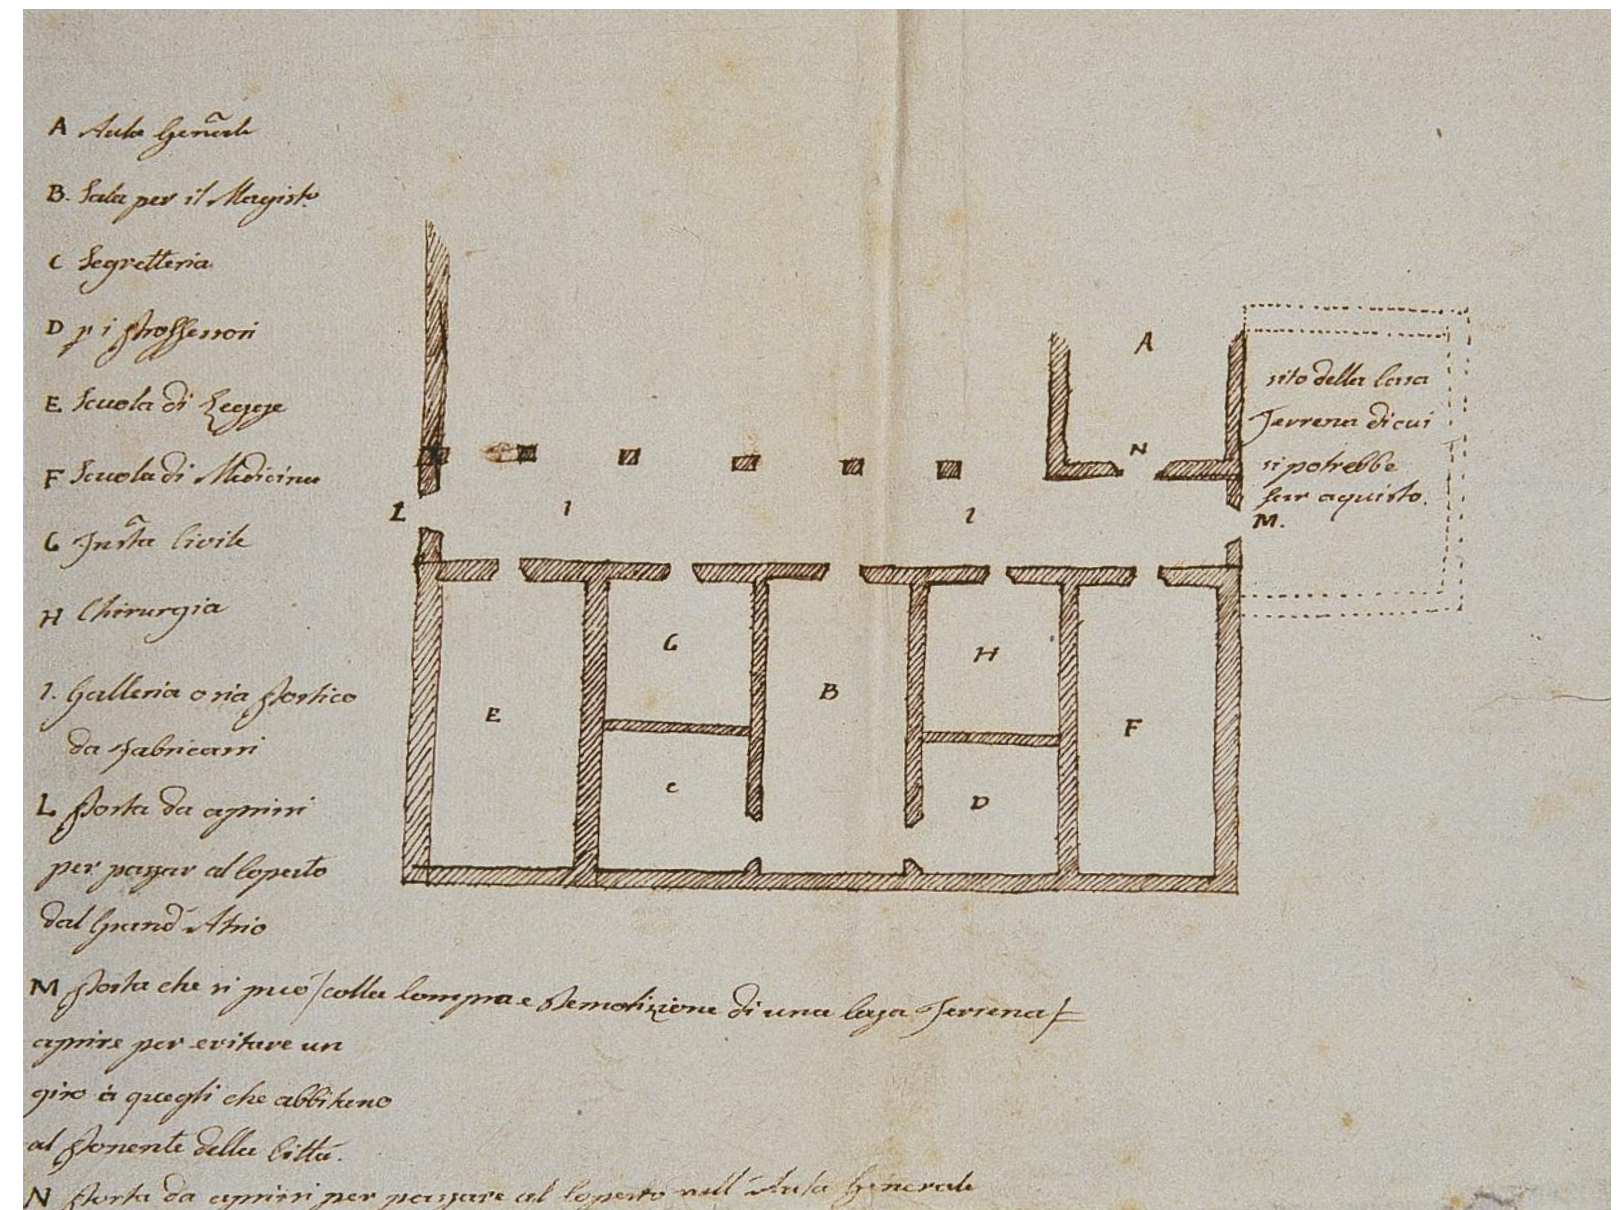 A Aula Genãle
B. Sala per il Magisto
C Segretteria
D p i Proffessori
E Scuola di Legge
F Scuola di Medicina
G Insta Civile
H Chirurgia
I. Galleria o sia Portico
da Fabricarsi
L Porta da aprirsi
per passar al Coperto
dal Grand'Atrio
M Porta che si può / colla Compra e Demolizione di una Casa Terrena /
aprire per evitare un
giro à quegli che abbitano
al Ponente della Città.
N Porta da aprirsi per passare al Coperto nell'Aula Generale
A
N
sito della Casa
Terrena di cui
si potrebbe
far aquisto.
L
I
I
M.
E
G
B
H
F
C
D